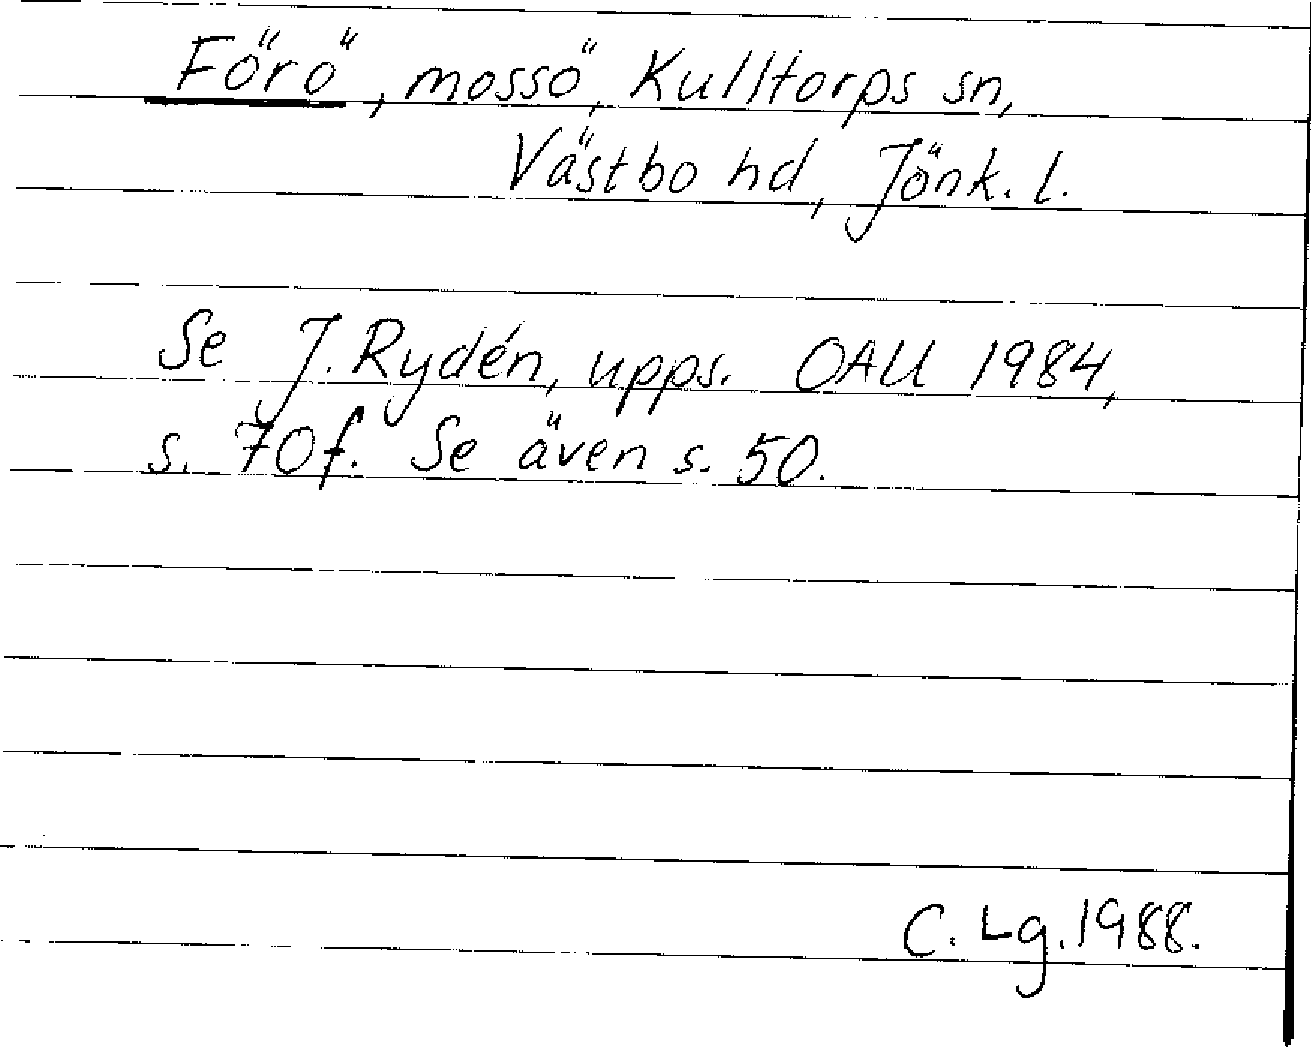 Förö, mossö, Kulltorps sn,
Västbo hd, Jönk. l.
Se J. Rydén, upps. OAU 1984,
s. 70f. Se även s. 50.
C. Lg. 1988.